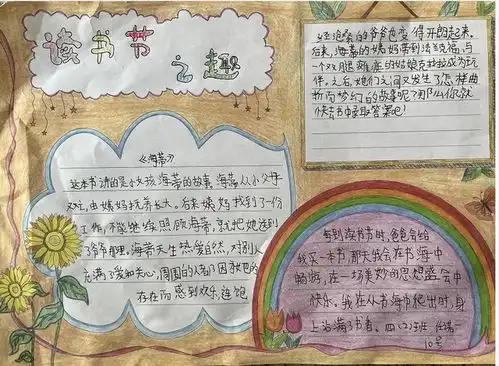 读书节
之趣
《海蒂》
这本书讲的是小女孩海蒂的故事,海蒂从小父母
双亡,由姨妈抚养长大。后来姨妈找到了一份
工作,不能继续照顾海蒂,就把她送到
了爷爷那里,海蒂天生热爱自然,对别人
充满了爱和关心,周围的人都因为她的
存在而感到欢乐,连饱
经沧桑的爷爷也变得开朗起来。
后来,海蒂的姨妈带到法兰克福,与
一个双腿残疾的姑娘克拉拉成为玩
伴。之后她们之间又发生了怎样曲
折而梦幻的故事呢?那么你就
快去书中寻取答案吧!
每到读书节时,爸爸会给
我买一本书,那天我会在书海中
畅游,在一场美妙的思想盛会中
快乐,我在从书海中爬出时,身
上沾满了书香。四(2)班
10号